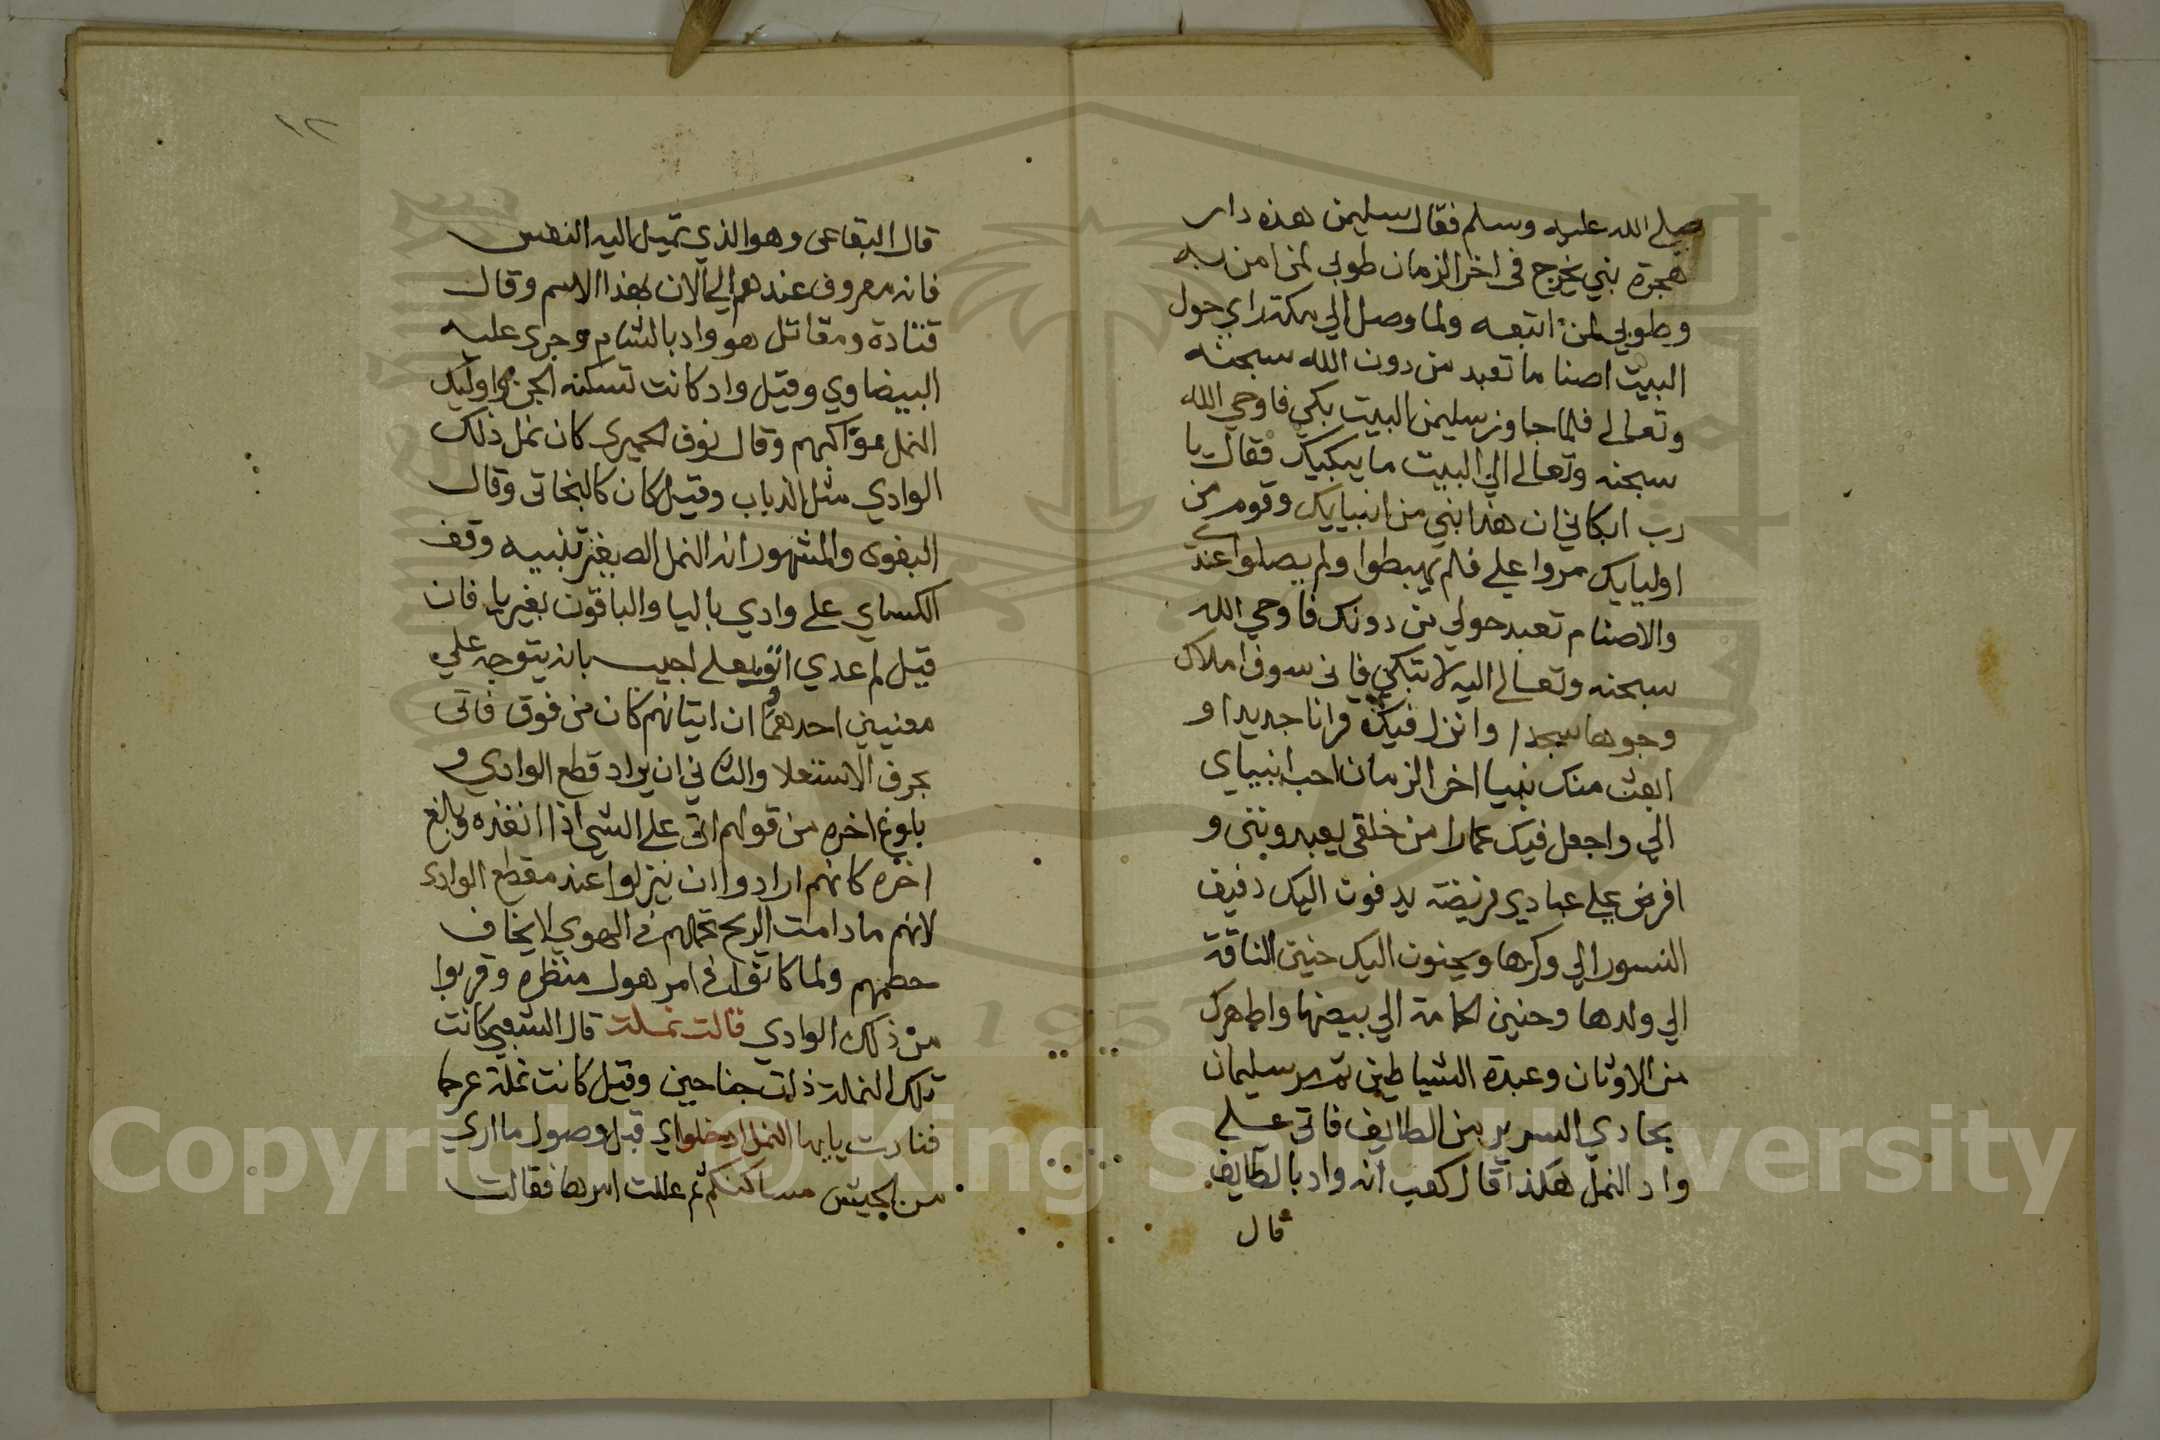 صلي الله عليه وسلم فقال سليمن هذه دار
هجرة نبي يخرج في اخر الزمان طوبي لمن امن به
وطوبي لمن اتبعه ولما وصل الي مكة راي حول
البيت اصناما تعبد من دون الله سبحنه
وتعالي فلما جاوز سليمن البيت بكي فاوحي الله
سبحنه وتعالي الي البيت ما يبكيك فقال يا
رب ابكاني ان هذا نبي من انبيايك وقوم من
اوليايك مروا علي فلم يهبطوا ولم يصلوا عندي
والاصنام تعبد حولي من دونك فاوحي الله
سبحنه وتعالي اليه لا تبكي فاني سوف املاك
وجوها سجدا وانزل فيك قرانا جديدا و
ابعث منك نبيا اخر الزمان احب انبياي
الي واجعل فيك عمارا من خلقي يعبدونني و
افرض علي عبادي فريضة يدفون اليك دفيف
النسور الي وكرها ويحنون اليك حنين الناقة
الي ولدها وحنين الحمامة الي بيضها واطهرك
من الاوثان وعبدة الشياطين ثم سليمان
بحادي السرير بين الطايف فاتي علي
واد النمل هكذا قال كعب انه واد بالطايف
قال
١٢
قال البقاعي وهو الذي تميل اليه النفس
فانه معروف عندهم الي الان بهذا الاسم وقال
قتادة ومقاتل هو واد بالشام وجري عليه
البيضاوي وقيل واد كانت تسكنه الجن واوليك
النمل مواكبهم وقال نوف الحميري كان نمل ذلك
الوادي مثل الذباب وقيل كان كالبخاتي وقال
البغوي والمشهور انه النمل الصغير تنبيه وقف
الكساي علي وادي باليا والباقون بغير يا فان
قيل لم عدي اتوا بعلي اجيب بانه يتوجه علي
معنيين احدهما ان اتيانهم كان من فوق فاتي
بحرف الاستعلا والثاني ان يراد قطع الوادي و
بلوغ اخره من قولهم اتي علي الشي اذا انفذه وبلغ
اخره كانهم ارادوا ان ينزلوا عند مقطع الوادي
لانهم ما دامت الريح تحملهم في الهوي لا يخاف
حطمهم ولما كانوا في امر هول منظره وقربوا
من ذلك الوادي قالت نملة قال الشعبي كانت
تلك النملة ذات جناحين وقيل كانت نملة عرجا
فنادت يايها النمل ادخلوا اي قبل وصول ما اري
من الجيش مساكنكم ثم عللت امرها فقالت
Copyright © King Saud University
1957